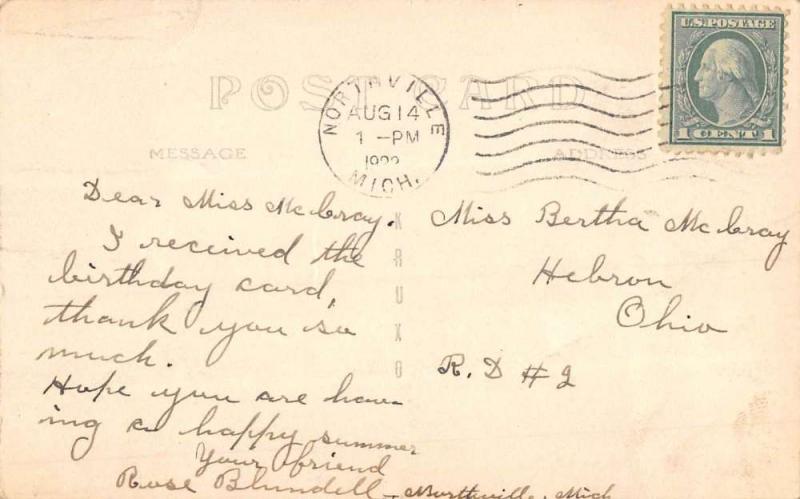 U.S. POSTAGE
1 CENT 1
POST CARD
NORTHVILLE
AUG 14
1 -PM
1922
MICH.
MESSAGE
ADDRESS
Dear Miss McCray.
I received the
birthday card,
thank you so
much.
Hope you are hav-
ing a happy summer
Your friend
Rose Blundell - Northville, Mich
KRUXO
Miss Bertha McCray
Hebron
Ohio
R.D #2